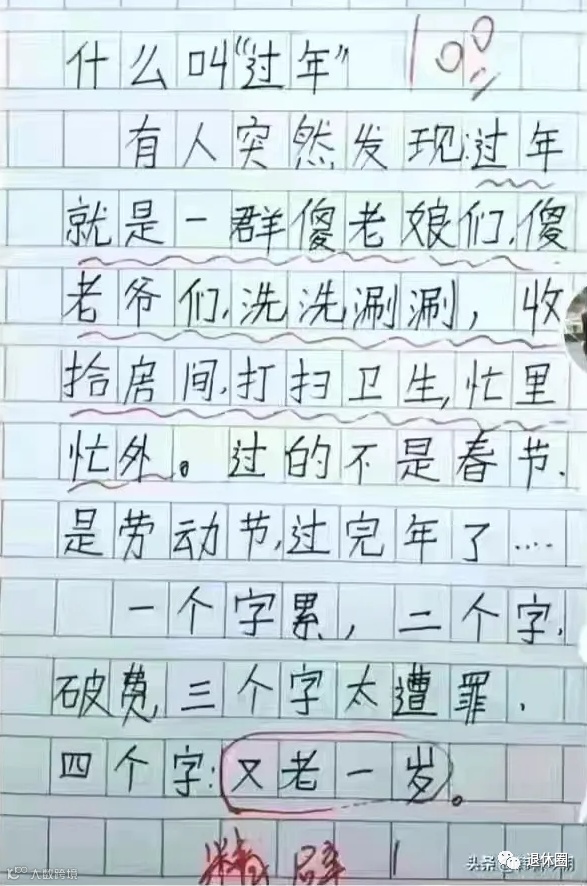 什么叫“过年” 100
有人突然发现:过年
就是一群傻老娘们,傻
老爷们,洗洗涮涮,收
拾房间,打扫卫生,忙里
忙外。过的不是春节.
是劳动节,过完年了....
一个字累,二个字,
破费三个字太遭罪.
四个字:又老一岁。
精辟!
头条
退休圈
大数跨境